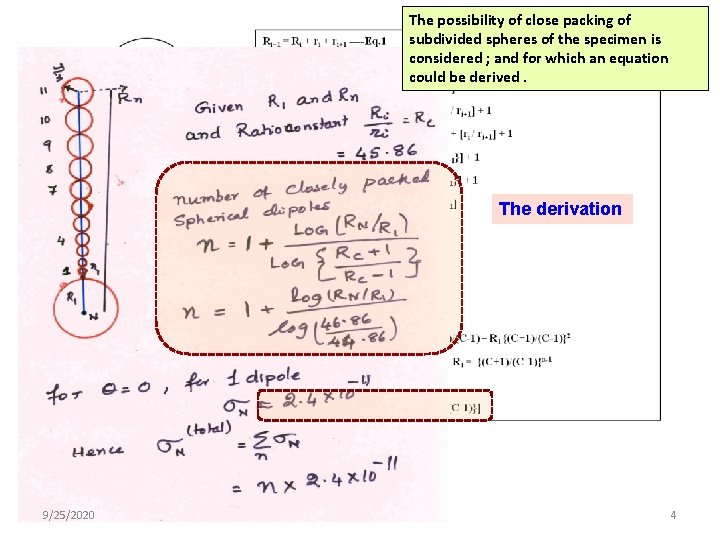 The possibility of close packing of
subdivided spheres of the specimen is
considered ; and for which an equation
could be derived .
R_{i-1} = R_i + r_i + r_{i+1} ----Eq.1
/ r_{i+1}] + 1
+ [r_i / r_{i+1}] + 1
}] + 1
] + 1
The derivation
(C-1) – R_1 {(C+1)/(C-1)}²
R_1 = {(C+1)/(C-1)}^{n-1}
(C-1)}]
11
R_n
10
9
8
7
4
1
R_1
N
Given R_1 and R_n
and Ratio constant R_i / r_i = R_c
= 45.86
number of closely packed
Spherical dipoles
n = 1 + LOG (R_N/R_1) / LOG { (R_C + 1) / (R_C - 1) }
n = 1 + log (R_N/R_1) / log (46.86 / 44.86)
for θ = 0, for 1 dipole
σ_N = 2.4 × 10^{-11}
Hence σ_N^{(total)} = Σ_n σ_N
= n × 2.4 × 10^{-11}
9/25/2020
4